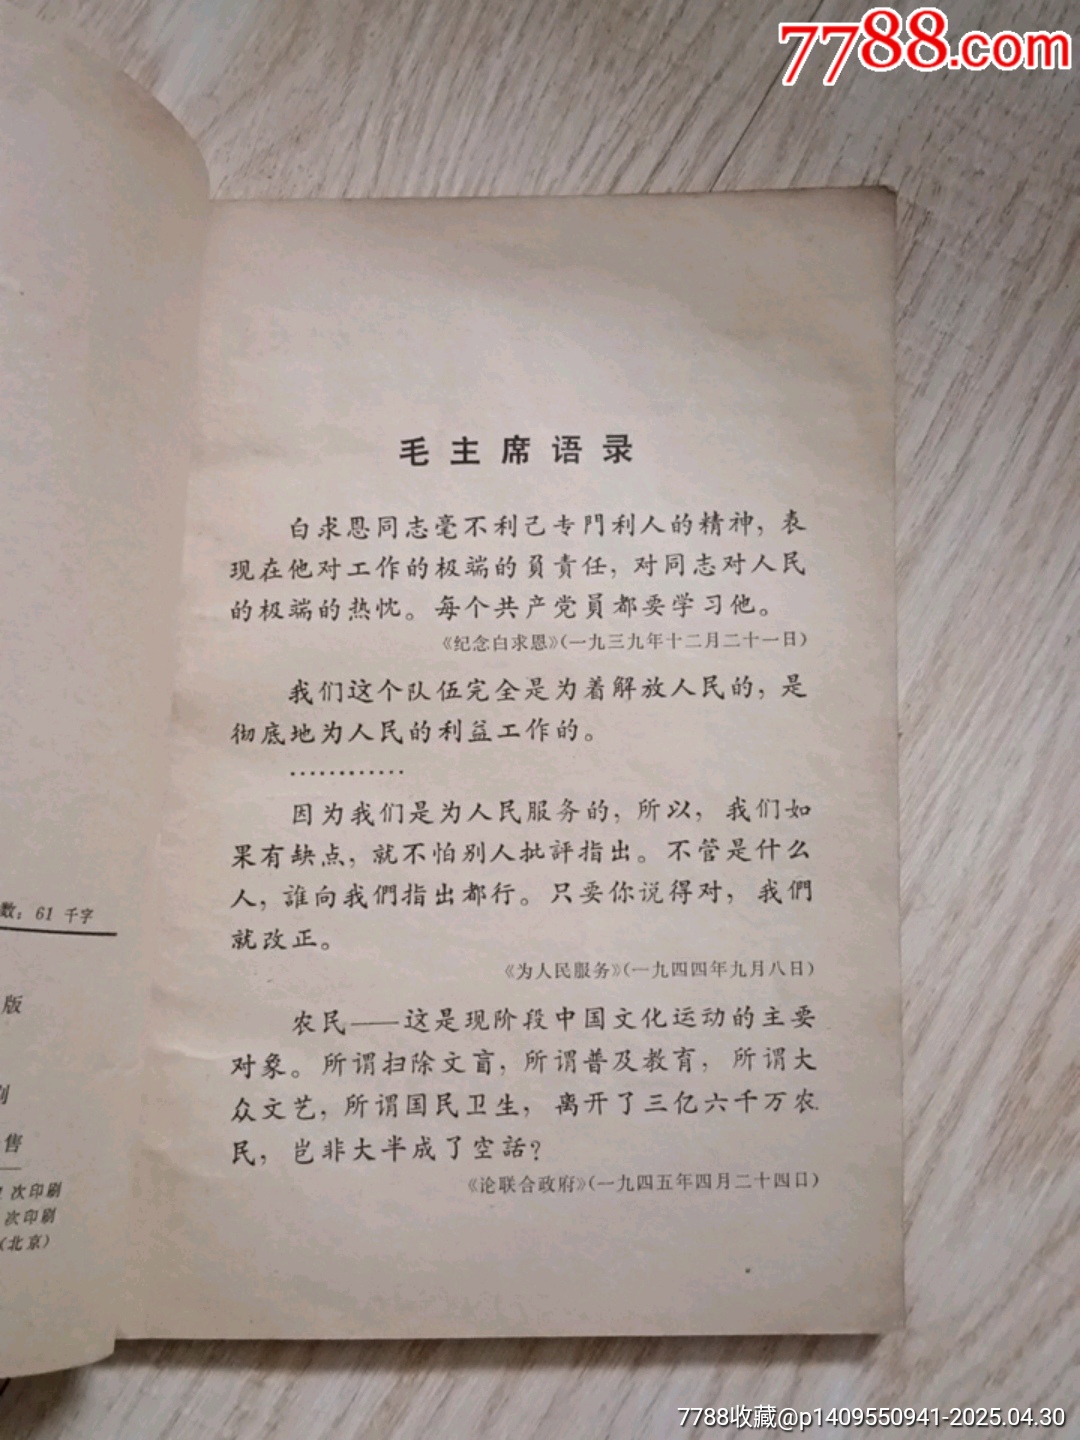 7788.com
毛主席语录
白求恩同志毫不利己专門利人的精神，表
现在他对工作的极端的負責任，对同志对人民
的极端的热忱。每个共产党員都要学习他。
《纪念白求恩》(一九三九年十二月二十一日)
我们这个队伍完全是为着解放人民的，是
彻底地为人民的利益工作的。
…………
因为我们是为人民服务的，所以，我们如
果有缺点，就不怕别人批評指出。不管是什么
人，誰向我們指出都行。只要你说得对，我們
就改正。
《为人民服务》(一九四四年九月八日)
农民——这是现阶段中国文化运动的主要
对象。所谓扫除文盲，所谓普及教育，所谓大
众文艺，所谓国民卫生，离开了三亿六千万农
民，岂非大半成了空話？
《论联合政府》(一九四五年四月二十四日)
数：61 千字
版
售
次印刷
次印刷
(北京)
7788收藏@p1409550941-2025.04.30